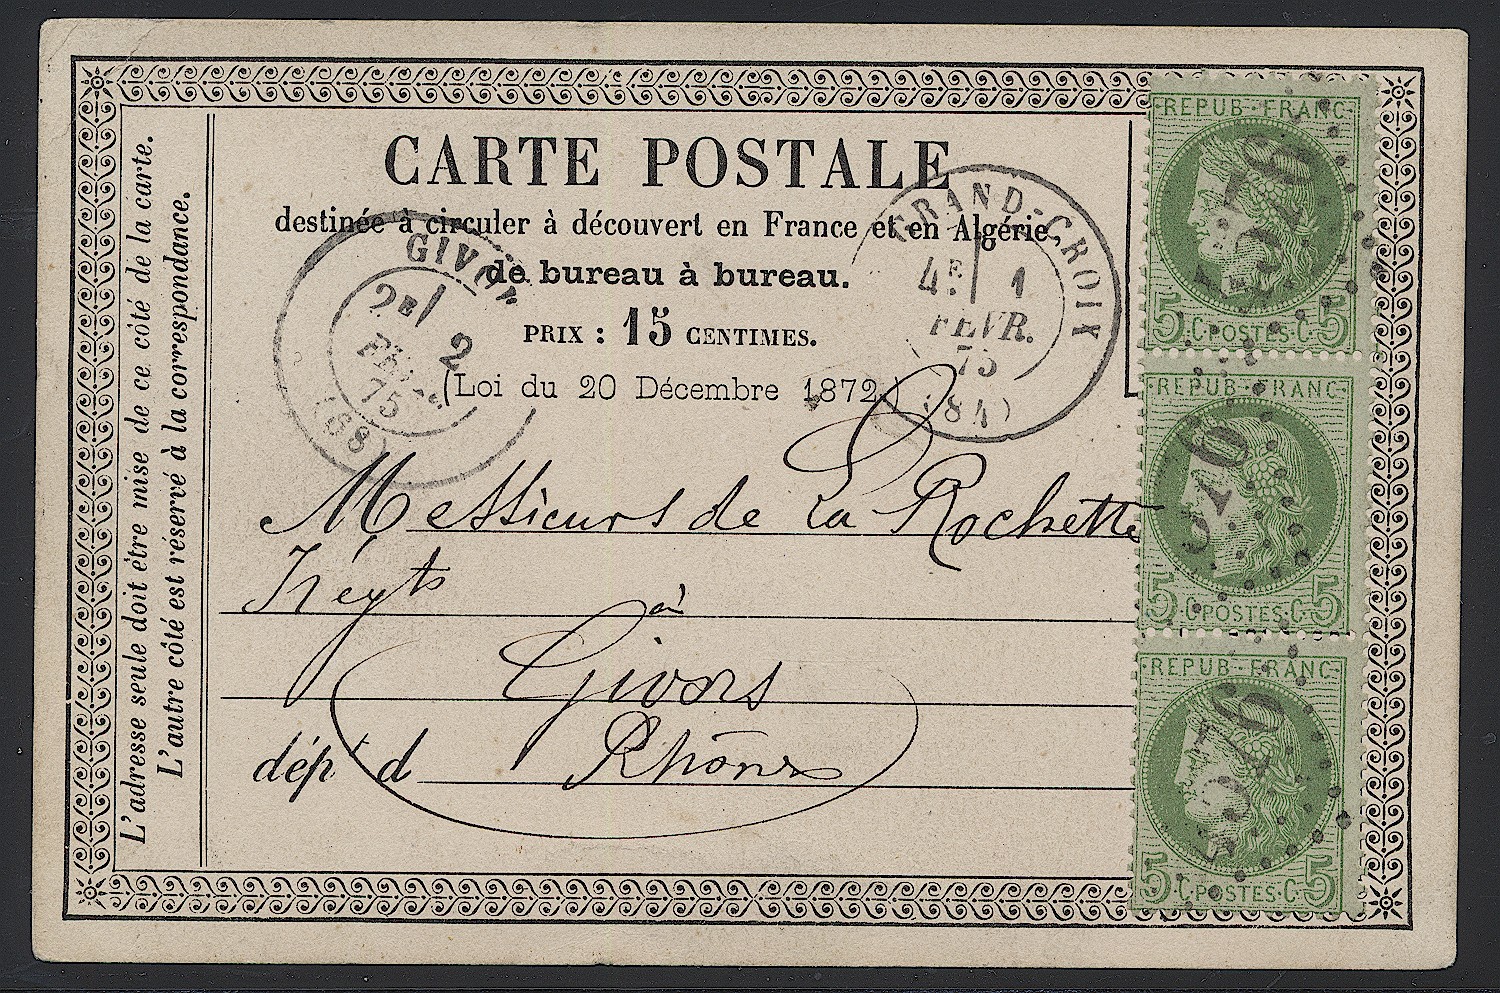 CARTE POSTALE
destinée à circuler à découvert en France et en Algérie,
de bureau à bureau.
PRIX : 15 CENTIMES.
(Loi du 20 Décembre 1872.)
L'adresse seule doit être mise de ce côté de la carte.
L'autre côté est réservé à la correspondance.
GRAND-CROIX
4E 1
FEVR.
75
(84)
2E 2
75
(68)
Messieurs de La Rochette
à
Givors
dépt d Rhône
REPUB FRANC
5 C POSTES C 5
REPUB FRANC
5 C POSTES C 5
REPUB FRANC
5 C POSTES C 5